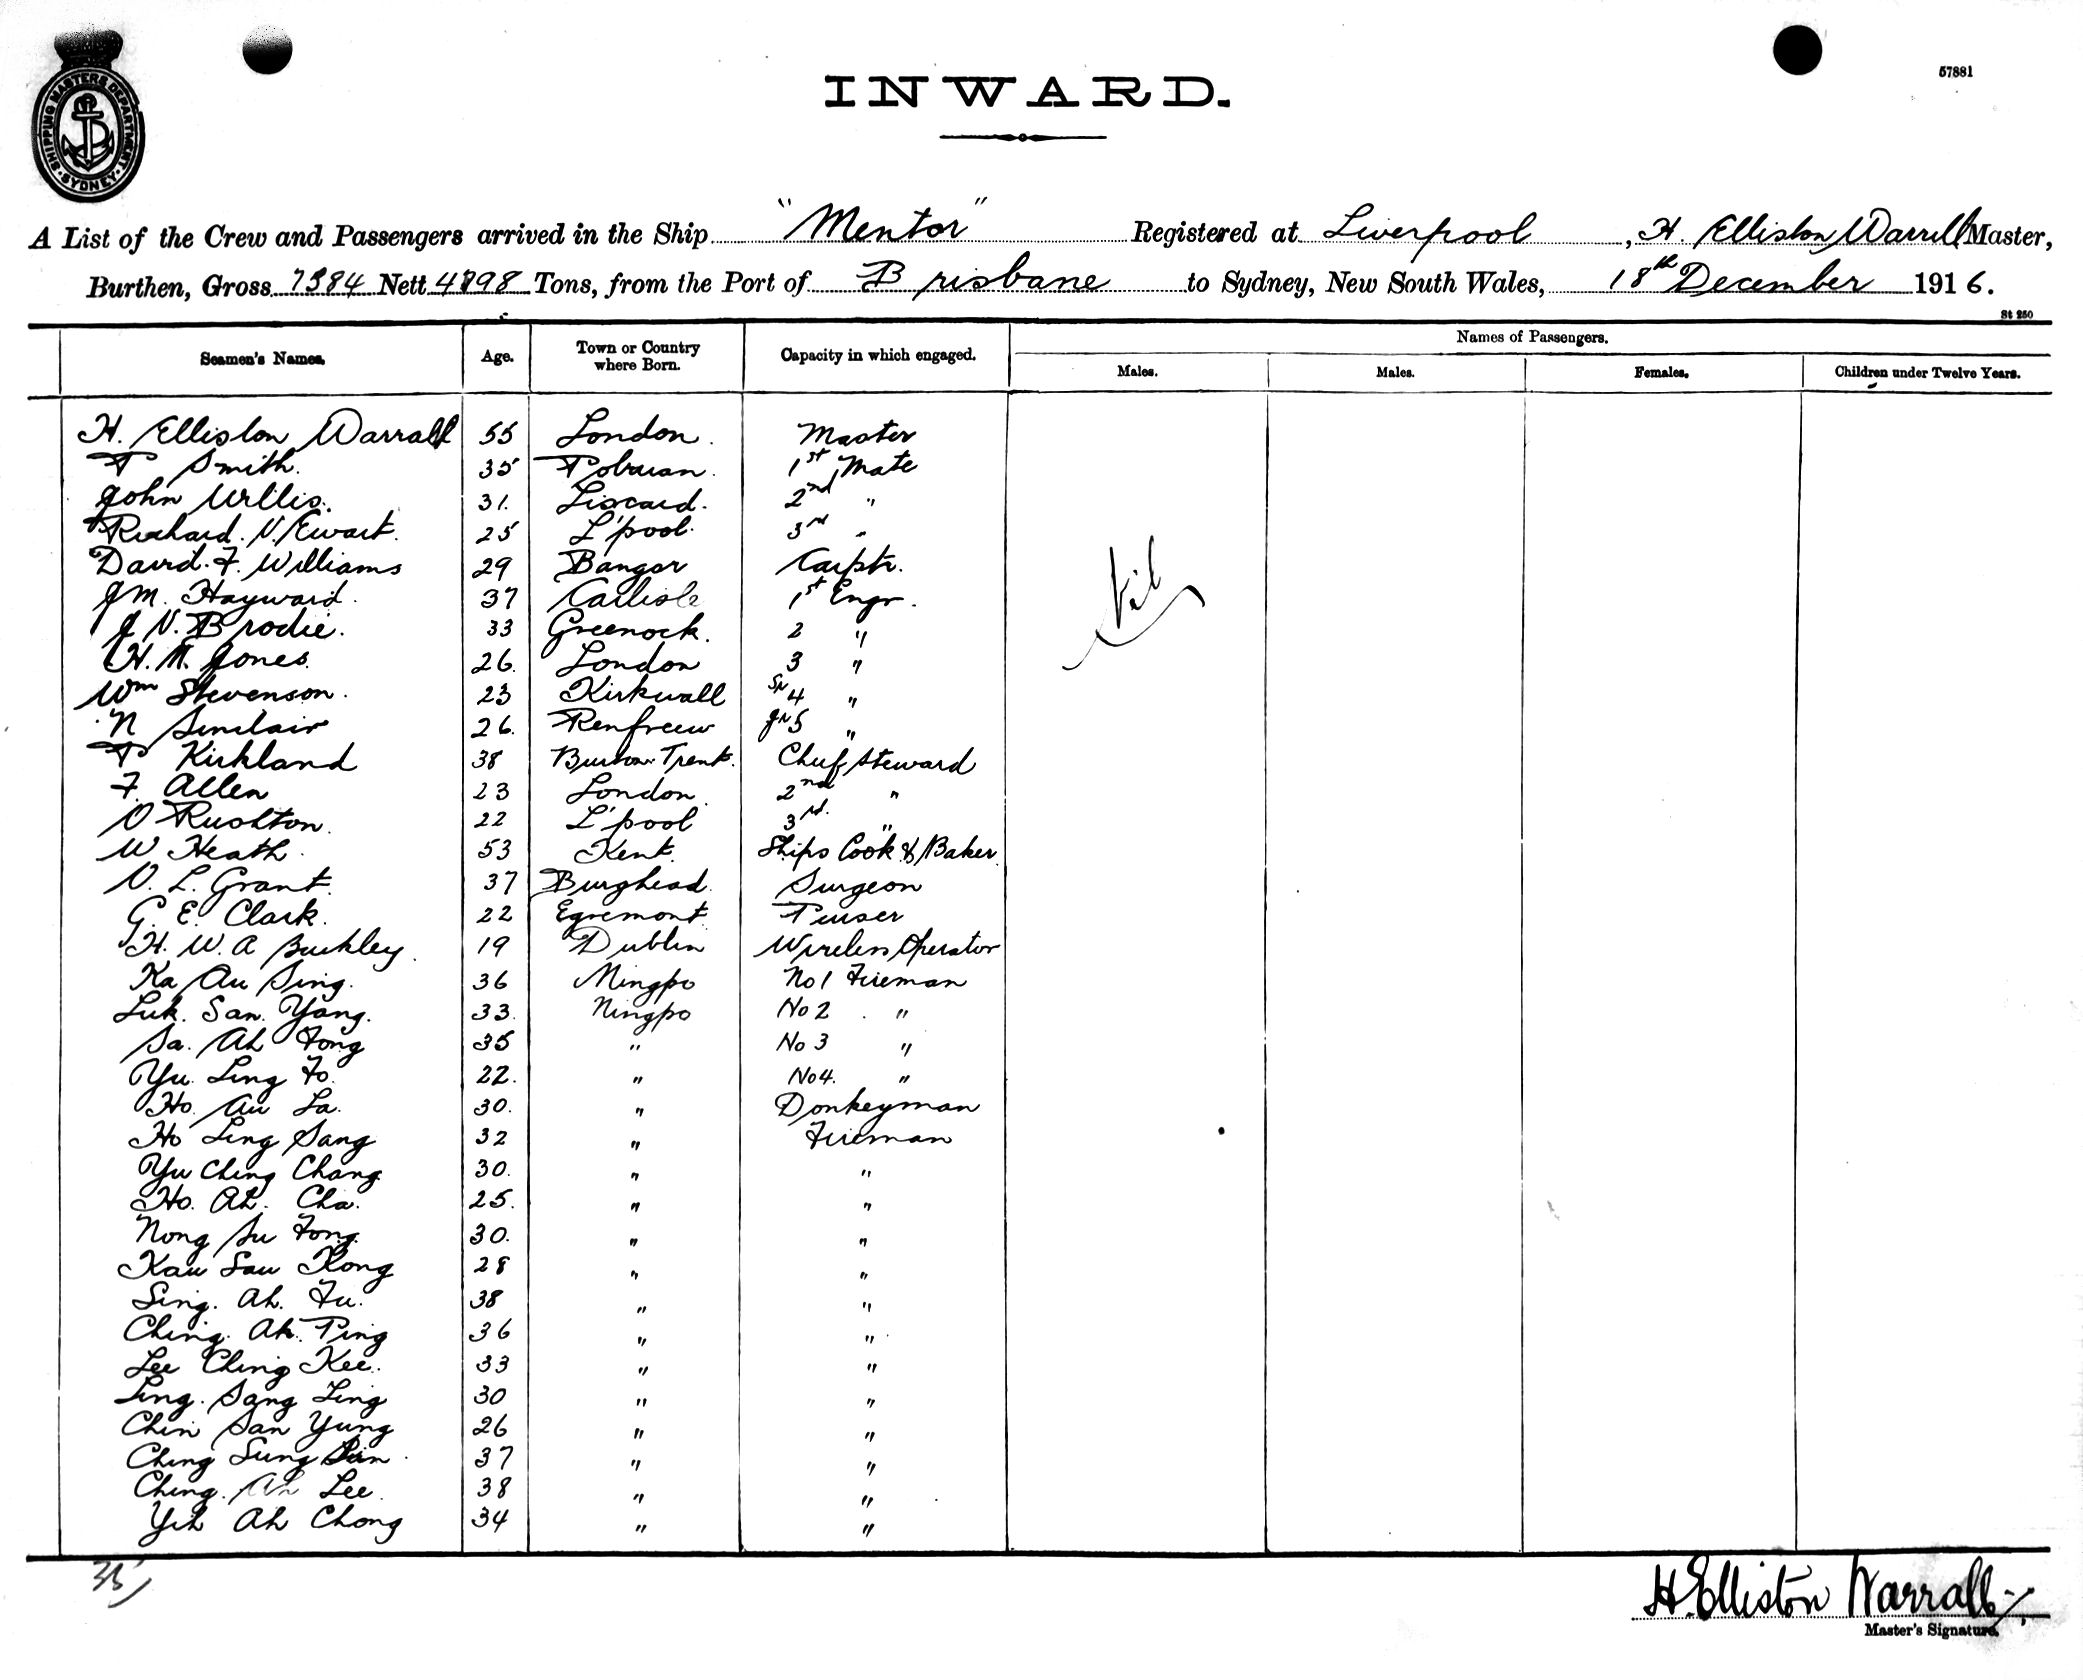 SHIPPING MASTERS DEPARTMENT · SYDNEY ·
57881
INWARD.
A List of the Crew and Passengers arrived in the Ship "Mentor" Registered at Liverpool, H. Elliston Warrall Master,
Burthen, Gross 7384 Nett 4798 Tons, from the Port of Brisbane to Sydney, New South Wales, 18th December 1916.
St 250
Seamen's Names. Age. Town or Country where Born. Capacity in which engaged. Names of Passengers.
Males. Males. Females. Children under Twelve Years.
H. Elliston Warrall 55 London. Master
T Smith. 35 Polruan. 1st Mate
John Willis. 31. Liscard. 2nd "
Richard. V. Ewart. 25 L'pool. 3rd "
David. F. Williams 29 Bangor Carptr.
J M. Hayward. 37 Carlisle 1st Engr.
J V. Brodie. 33 Greenock. 2 "
H. M. Jones. 26. London 3 "
Wm Stevenson. 23 Kirkwall Sr 4 "
N Sinclair 26. Renfrew Jr 5 "
T Kirkland 38 Burton. Trent. Chief Steward
F. Allen 23 London. 2nd "
O Rushton. 22 L'pool 3rd. "
W Heath. 53 Kent. Ships Cook & Baker
V. L. Grant. 37 Burghead. Surgeon
G. E. Clark. 22 Egremont. Purser
H. W. A Buckley. 19 Dublin Wireless Operator
Ka Au Sing. 36 Mingpo No 1 Fireman
Luk. San. Yang. 33. Ningpo No 2 "
Sa. Ah Fong 35 " No 3 "
Yu Ling Fo. 22. " No 4. "
Ho. Au La. 30. " Donkeyman
Ho Ling Sang 32 " Fireman
Yu Ching Chang 30. " "
Ho. Ah. Cha. 25. " "
Nong Su Fong. 30. " "
Kau Sau Kong 28 " "
Sing. Ah. Fu. 38 " "
Ching. Ah. Ping 36 " "
Lee Ching Kee. 33 " "
Ling. Sang Ling 30 " "
Chin San Yung 26 " "
Ching Sung 37 " "
Ching. Ah Lee. 38 " "
Yih Ah Chong 34 " "
Nil
35
H. Elliston Warrall
Master's Signature.